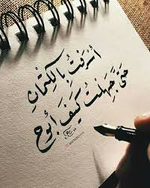 أسرفت بالكتمان
حتى جهلت كيف أبوح